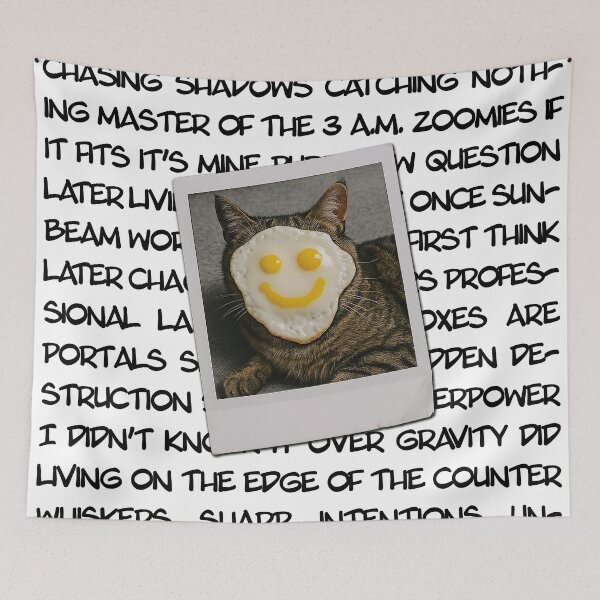 CHASING SHADOWS CATCHING NOTH-
ING MASTER OF THE 3 A.M. ZOOMIES IF
IT FITS IT'S MINE QUESTION
LATER ONCE SUN-
BEAM FIRST THINK
LATER PROFES-
SIONAL ARE
PORTALS DE-
STRUCTION
I DIDN'T OVER GRAVITY DID
LIVING ON THE EDGE OF THE COUNTER
WHISKERS SHARP INTENTIONS UN-